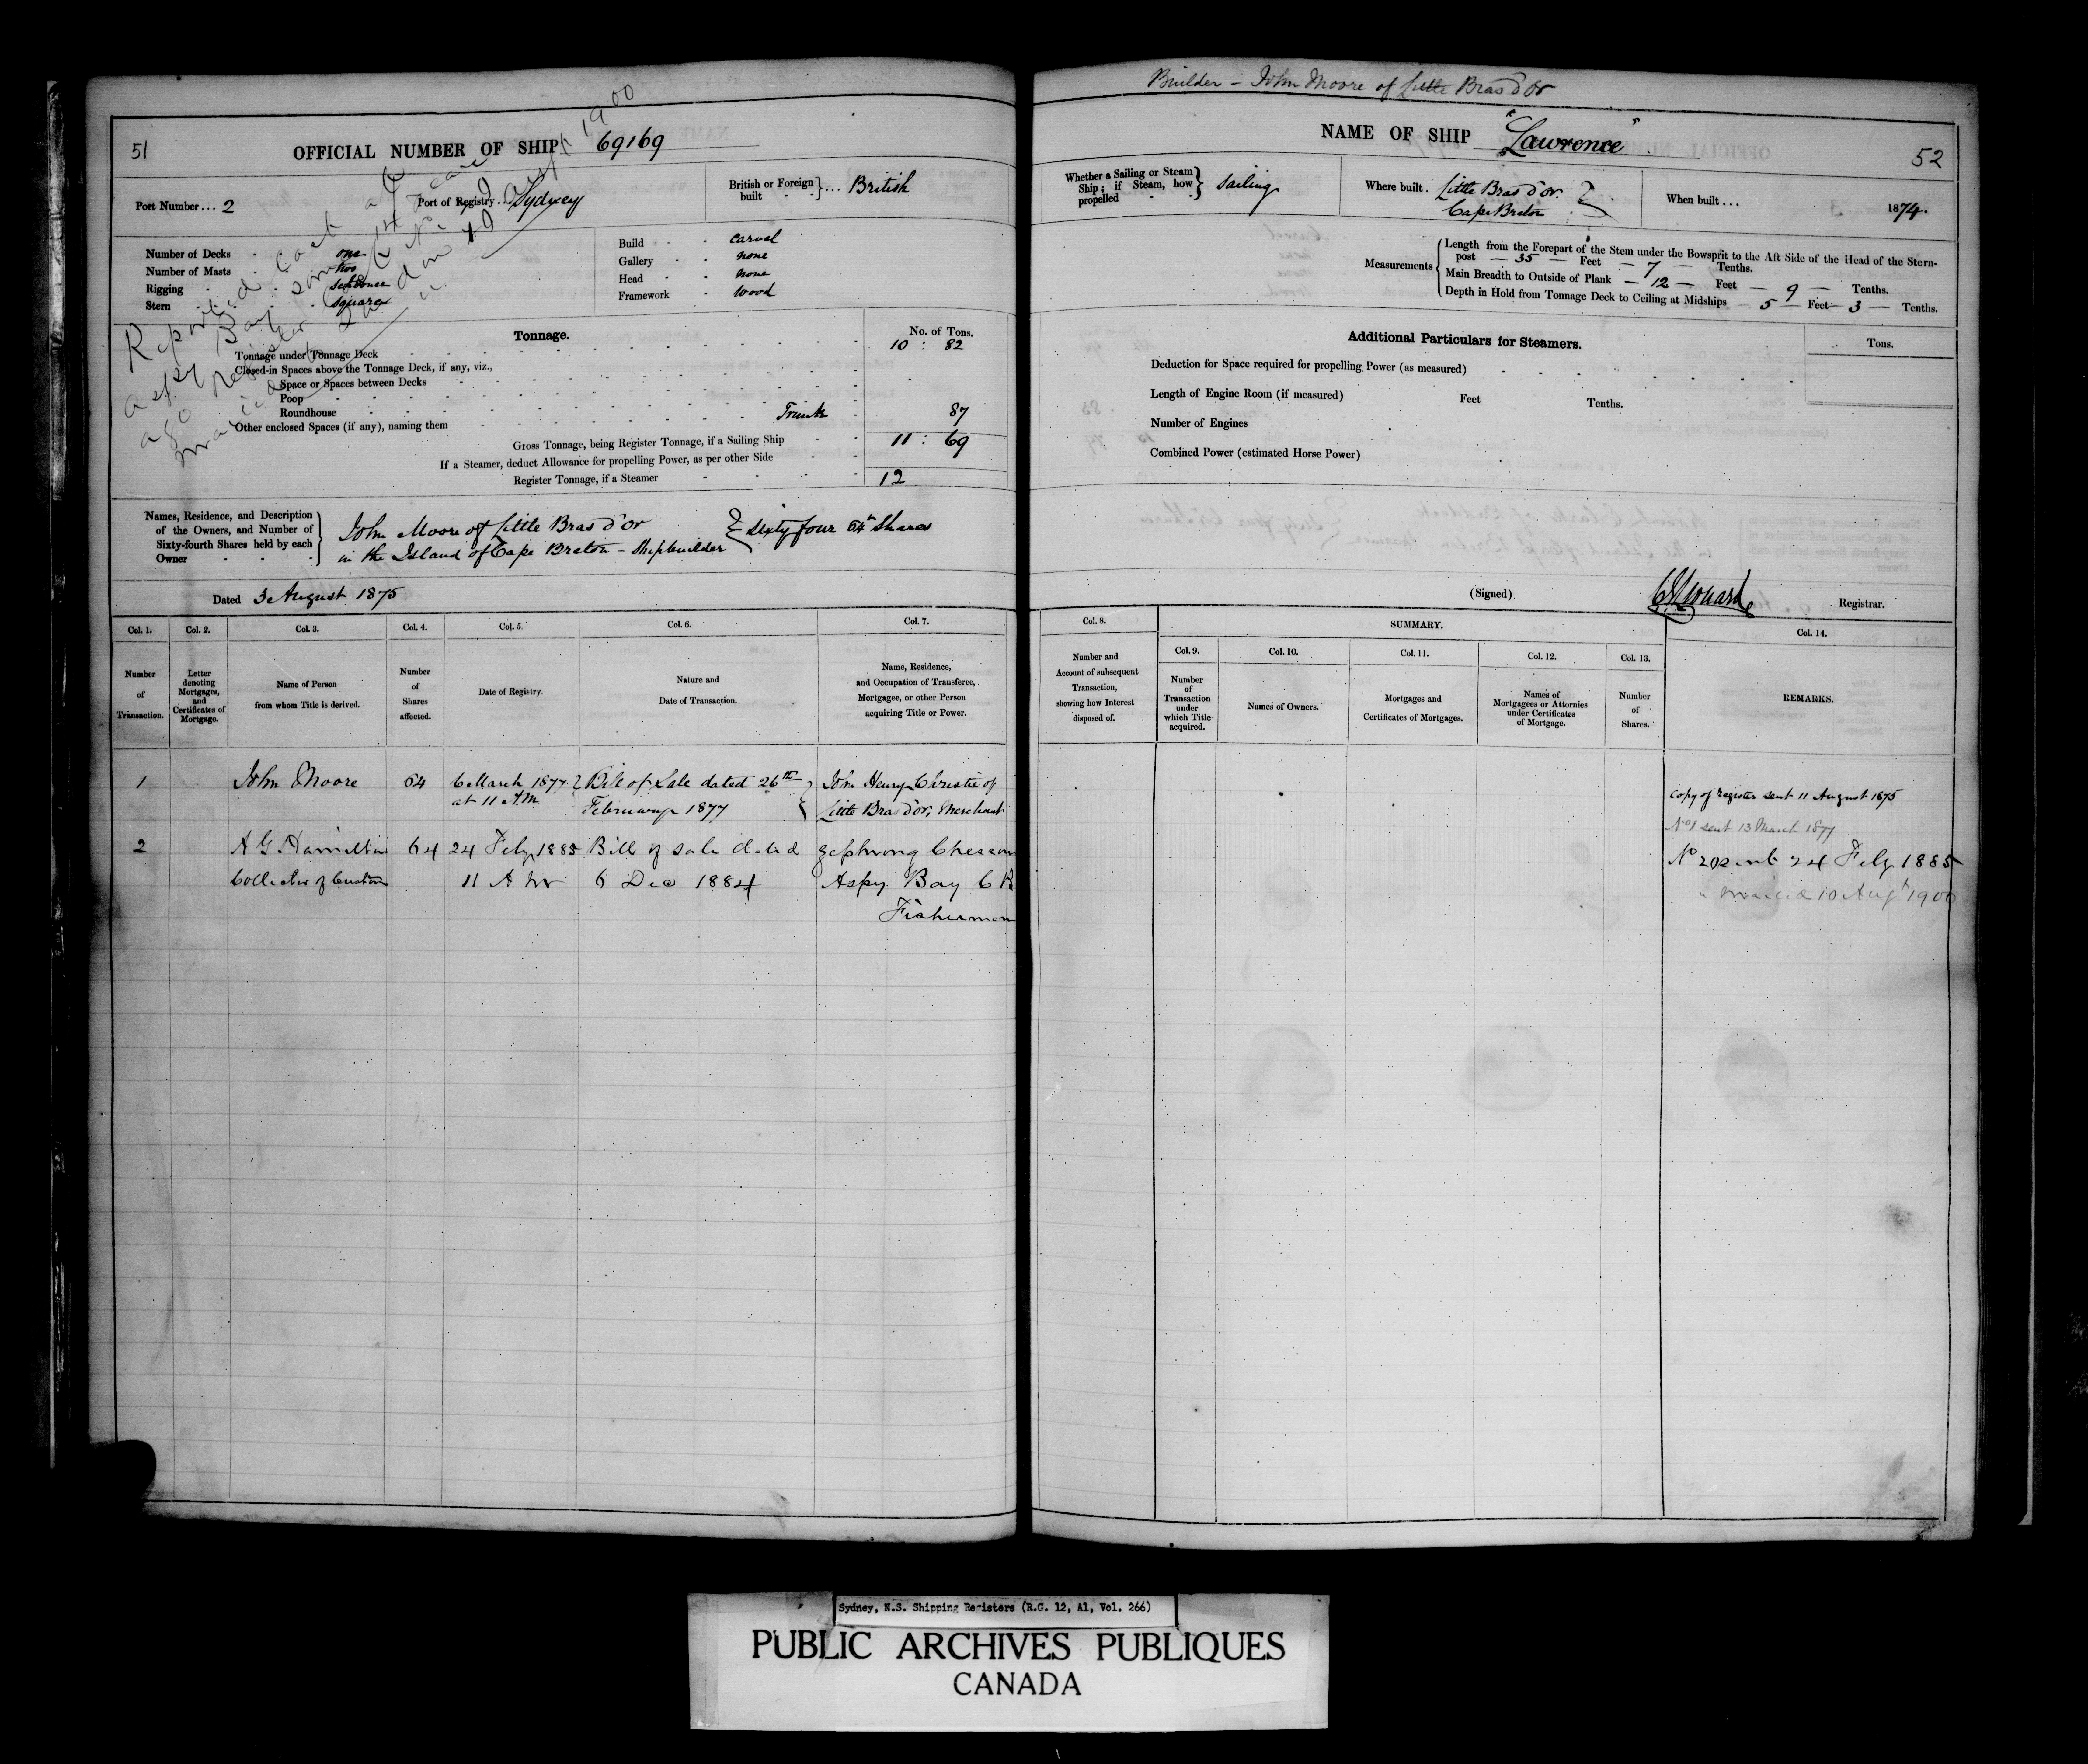 Builder - John Moore of Little Bras d'Or
51
OFFICIAL NUMBER OF SHIP 69169
Port Number... 2
Port of Registry... Sydney
British or Foreign built } ... British
Number of Decks one
Number of Masts two
Rigging Schooner
Stern Square
Build Carvel
Gallery none
Head none
Framework Wood
Reported lost at
Aspy Bay some
ago register
Tonnage.
No. of Tons.
Tonnage under Tonnage Deck 10 : 82
Closed-in Spaces above the Tonnage Deck, if any, viz.,
Space or Spaces between Decks
Poop
Roundhouse
Other enclosed Spaces (if any), naming them Trunk 87
Gross Tonnage, being Register Tonnage, if a Sailing Ship 11 : 69
If a Steamer, deduct Allowance for propelling Power, as per other Side
Register Tonnage, if a Steamer 12
Names, Residence, and Description of the Owners, and Number of Sixty-fourth Shares held by each Owner
John Moore of Little Bras d'or
in the Island of Cape Breton - Shipbuilder } Sixty four 64th Shares
Dated 3 August 1875
Col. 1. Col. 2. Col. 3. Col. 4. Col. 5. Col. 6. Col. 7.
Number of Transaction.
Letter denoting Mortgages, and Certificates of Mortgage.
Name of Person from whom Title is derived.
Number of Shares affected.
Date of Registry.
Nature and Date of Transaction.
Name, Residence, and Occupation of Transferee, Mortgagee, or other Person acquiring Title or Power.
1 John Moore 64 6 March 1877 at 11 A.M. Bill of Sale dated 26th February 1877 John Henry Christie of Little Bras d'or, Merchant
2 A G Hamilton Collector of Customs 64 24 Feby 1885 11 A M Bill of Sale dated 6 Dec 1884 Aspy Bay C B Fisherman
NAME OF SHIP "Lawrence"
52
Whether a Sailing or Steam Ship; if Steam, how propelled } Sailing
Where built. Little Bras d'or Cape Breton
When built... 1874.
Measurements
Length from the Forepart of the Stem under the Bowsprit to the Aft Side of the Head of the Stern-
post — 35 — Feet — 7 — Tenths.
Main Breadth to Outside of Plank — 12 — Feet — 9 — Tenths.
Depth in Hold from Tonnage Deck to Ceiling at Midships — 5 — Feet — 3 — Tenths.
Additional Particulars for Steamers.
Tons.
Deduction for Space required for propelling Power (as measured)
Length of Engine Room (if measured) Feet Tenths.
Number of Engines
Combined Power (estimated Horse Power)
(Signed) Registrar.
Col. 8.
SUMMARY.
Col. 14.
Col. 9. Col. 10. Col. 11. Col. 12. Col. 13.
Number and Account of subsequent Transaction, showing how Interest disposed of.
Number of Transaction under which Title acquired.
Names of Owners.
Mortgages and Certificates of Mortgages.
Names of Mortgagees or Attornies under Certificates of Mortgage.
Number of Shares.
REMARKS.
Copy of Register sent 11 August 1875
No 1 sent 13 March 1877
No 2 sent 24 Feby 1885
10 Augt 1900
Sydney, N.S. Shipping Registers (R.G. 12, A1, Vol. 266)
PUBLIC ARCHIVES PUBLIQUES
CANADA